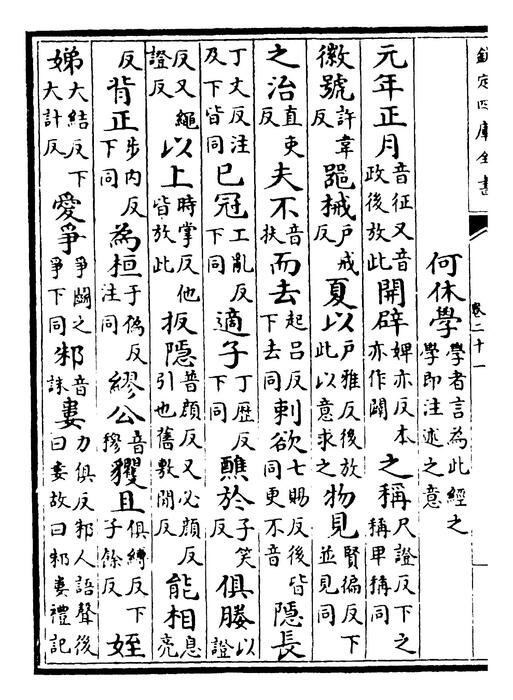 欽定四庫全書 卷二十一
何休學學者言為此經之學即注述之意
元年正月音征又音政後放此開辟婢亦反本亦作闢之稱尺證反下之稱甲稱同
徽號許韋反器械戶戒反夏以戶雅反後放此以意求之物見賢徧反下並見同
之治直吏反夫不音扶而去起呂反下去同刺欲七賜反後皆同更不音隱長
丁丈反注及下皆同已冠工亂反下同適子丁歷反下同醮於子笑反俱媵以證
反又繩證反以上時掌反他皆放此扳隱普顏反又必顏反引也舊敷閒反能相息亮
反背正步內反下同為桓于偽反注同繆公音穆玃且俱縛反下子餘反姪
娣大結反下大計反愛爭爭鬭之爭下同邾音誅婁力俱反邾人語聲後曰婁故曰邾婁禮記